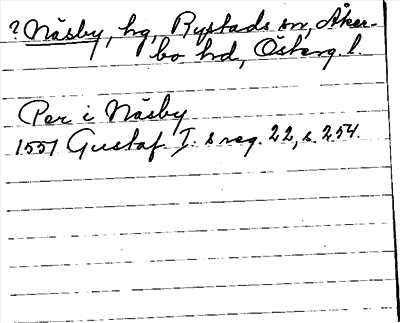 ? Näsby, hg, Rystads sn, Åker-
bo hd, Österg. l.
Per i Näsby
1551 Gustaf I:s reg. 22, s. 254.